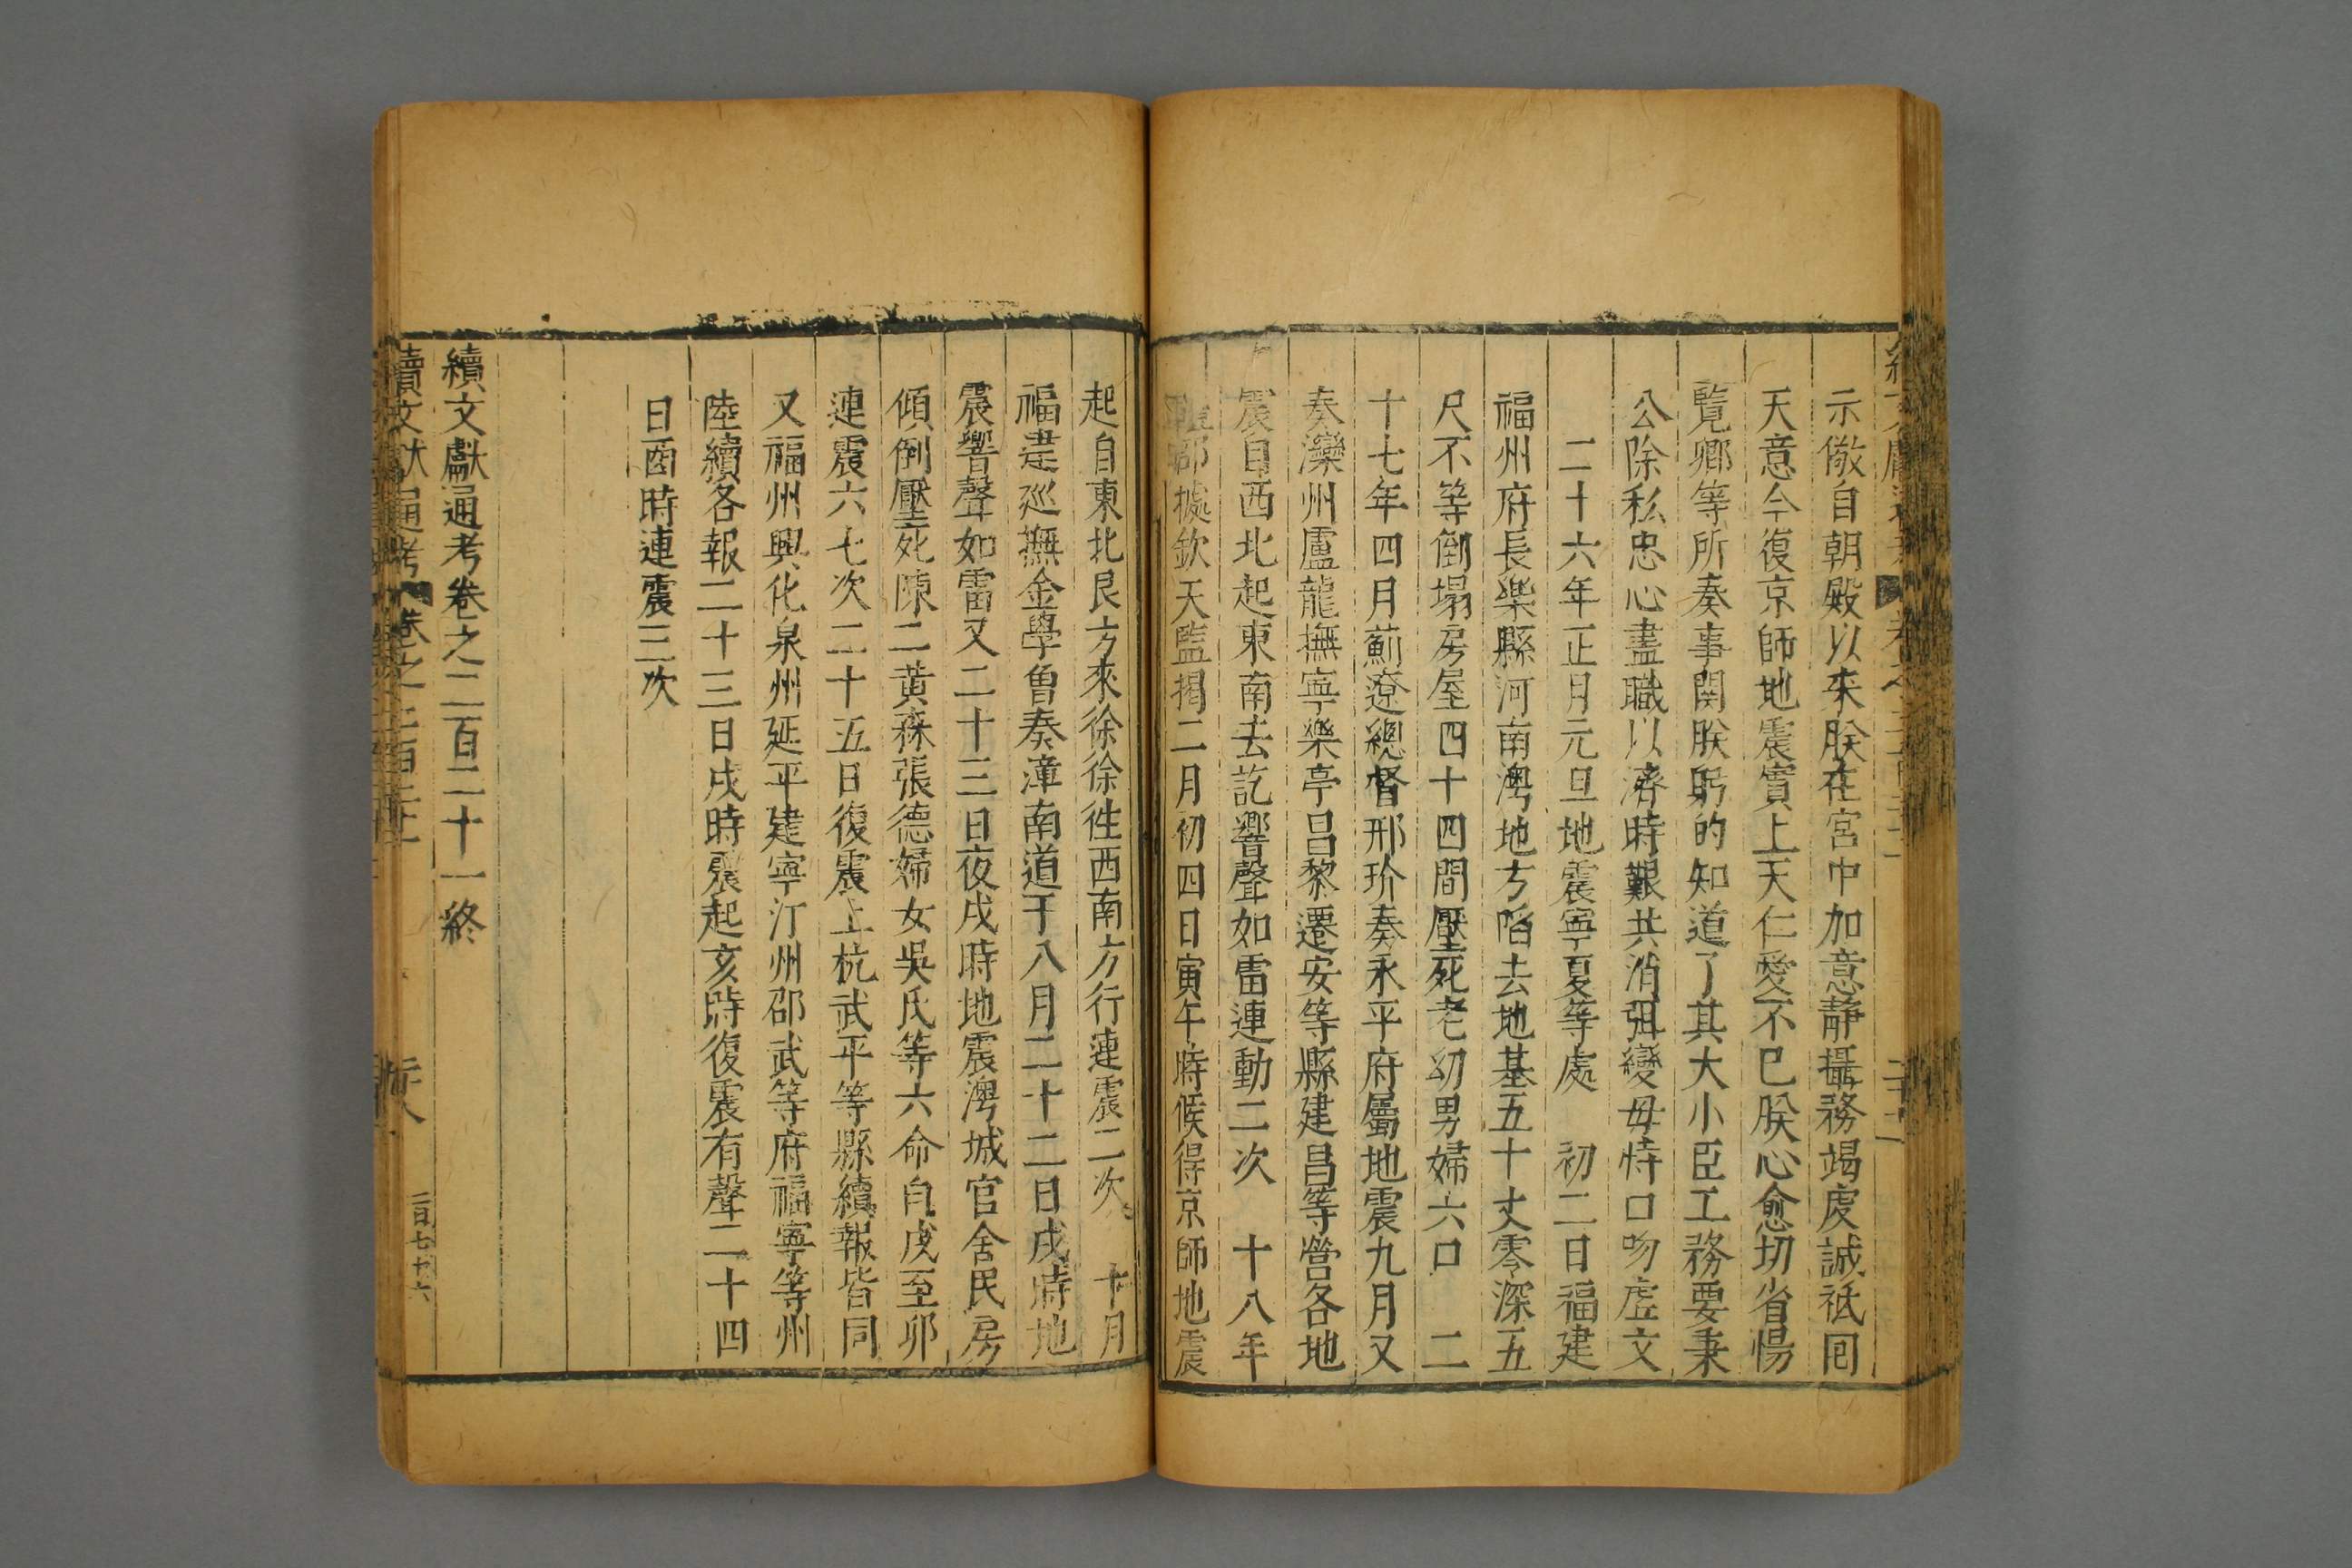 示儆自朝殿以來朕在宮中加意靜攝務竭虔誠祗回
天意今復京師地震實上天仁愛不巳朕心愈切省惕
覽卿等所奏事関朕躬的知道了其大小臣工務要秉
公除私忠心盡職以濟時艱共消弭變毋恃口吻虗文
二十六年正月元旦地震寧夏等處 初二日福建
福州府長樂縣河南灣地方陷去地基五十丈零深五
尺不等倒塌房屋四十四間壓死老幼男婦六口 二
十七年四月薊遼總督邢玠奏永平府屬地震九月又
奏灤州盧龍撫寧樂亭昌黎遷安等縣建昌等營各地
震自西北起東南去訖響聲如雷連動二次 十八年
禮部據欽天監揭二月初四日寅午時候得京師地震
起自東北艮方來徐徐徃西南方行連震二次 十月
福建巡撫金學曾奏漳南道于八月二十二日戌時地
震響聲如雷又二十三日夜戌時地震灣城官舍民房
傾倒壓死陳二黃森張德婦女吳氏等六命自戌至卯
連震六七次二十五日復震上杭武平等縣續報皆同
又福州興化泉州延平建寧汀州邵武等府福寧等州
陸續各報二十三日戌時震起亥時復震有聲二十四
日酉時連震三次
續文獻通考卷之二百二十一終
續文獻通考 卷之二百二十一